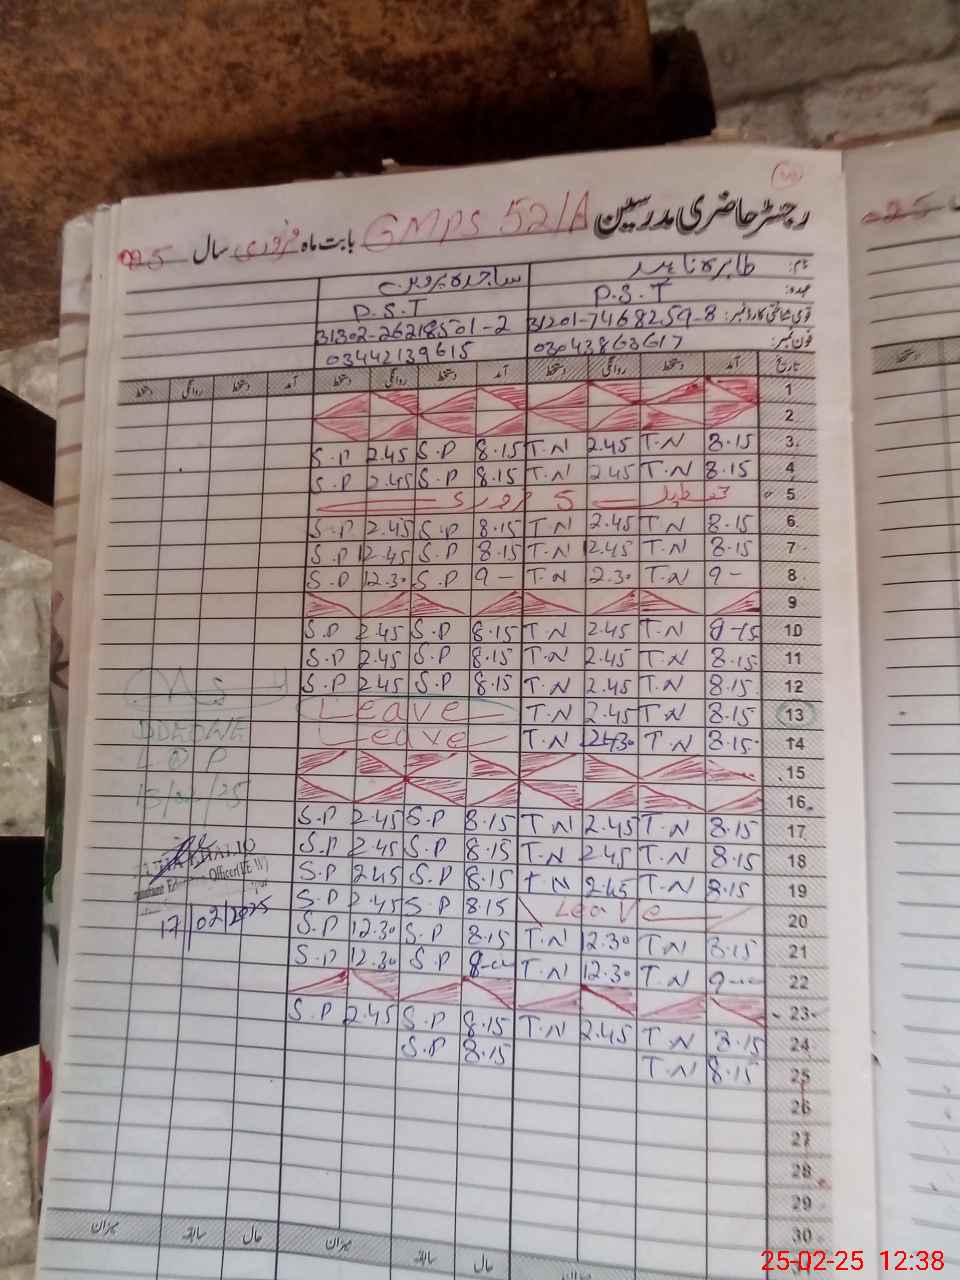 رجسٹر حاضری مدرسین GMPS 52/A بابت ماہ فروری سال 025
نام: طاہرہ ناہید ساجدہ پروین
عہدہ: P.S.T P.S.T
قومی شناختی کارڈ نمبر: 31201-7468259-8 31302-26218501-2
فون نمبر: 03043863617 03442139615
تاریخ آمد دستخط روانگی دستخط آمد دستخط روانگی دستخط آمد دستخط روانگی دستخط
1
2
3 8.15 T.N 2.45 T.N 8.15 S.P 2.45 S.P
4 8.15 T.N 2.45 T.N 8.15 S.P 2.45 S.P
5 تعطیل 5
6 8.15 T.N 2.45 T.N 8.15 S.P 2.45 S.P
7 8.15 T.N 2.45 T.N 8.15 S.P 2.45 S.P
8 9- T.N 2.30 T.N 9- S.P 2.30 S.P
9
10 8-15 T.N 2.45 T.N 8.15 S.P 2.45 S.P
11 8.15 T.N 2.45 T.N 8.15 S.P 2.45 S.P
12 8.15 T.N 2.45 T.N 8.15 S.P 2.45 S.P
13 8.15 T.N 2.45 T.N Leave
14 8.15 T.N T.N Leave
15
16
17 8.15 T.N 2.45 T.N 8.15 S.P 2.45 S.P
18 8.15 T.N 2.45 T.N 8.15 S.P 2.45 S.P
19 8.15 T.N 2.45 T.N 8.15 S.P 2.45 S.P
20 Leave 8.15 S.P 2.45 S.P
21 8.15 T.N 12.30 T.N 8.15 S.P 12.30 S.P
22 9-- T.N 12.30 T.N S.P 12.30 S.P
23
24 8.15 T.N 2.45 T.N 8.15 S.P 2.45 S.P
25 8.15 T.N 8.15 S.P
26
27
28
29
30
13/02/25
Officer
17/02/2025
حال سابقہ میزان حال سابقہ میزان
25-02-25 12:38